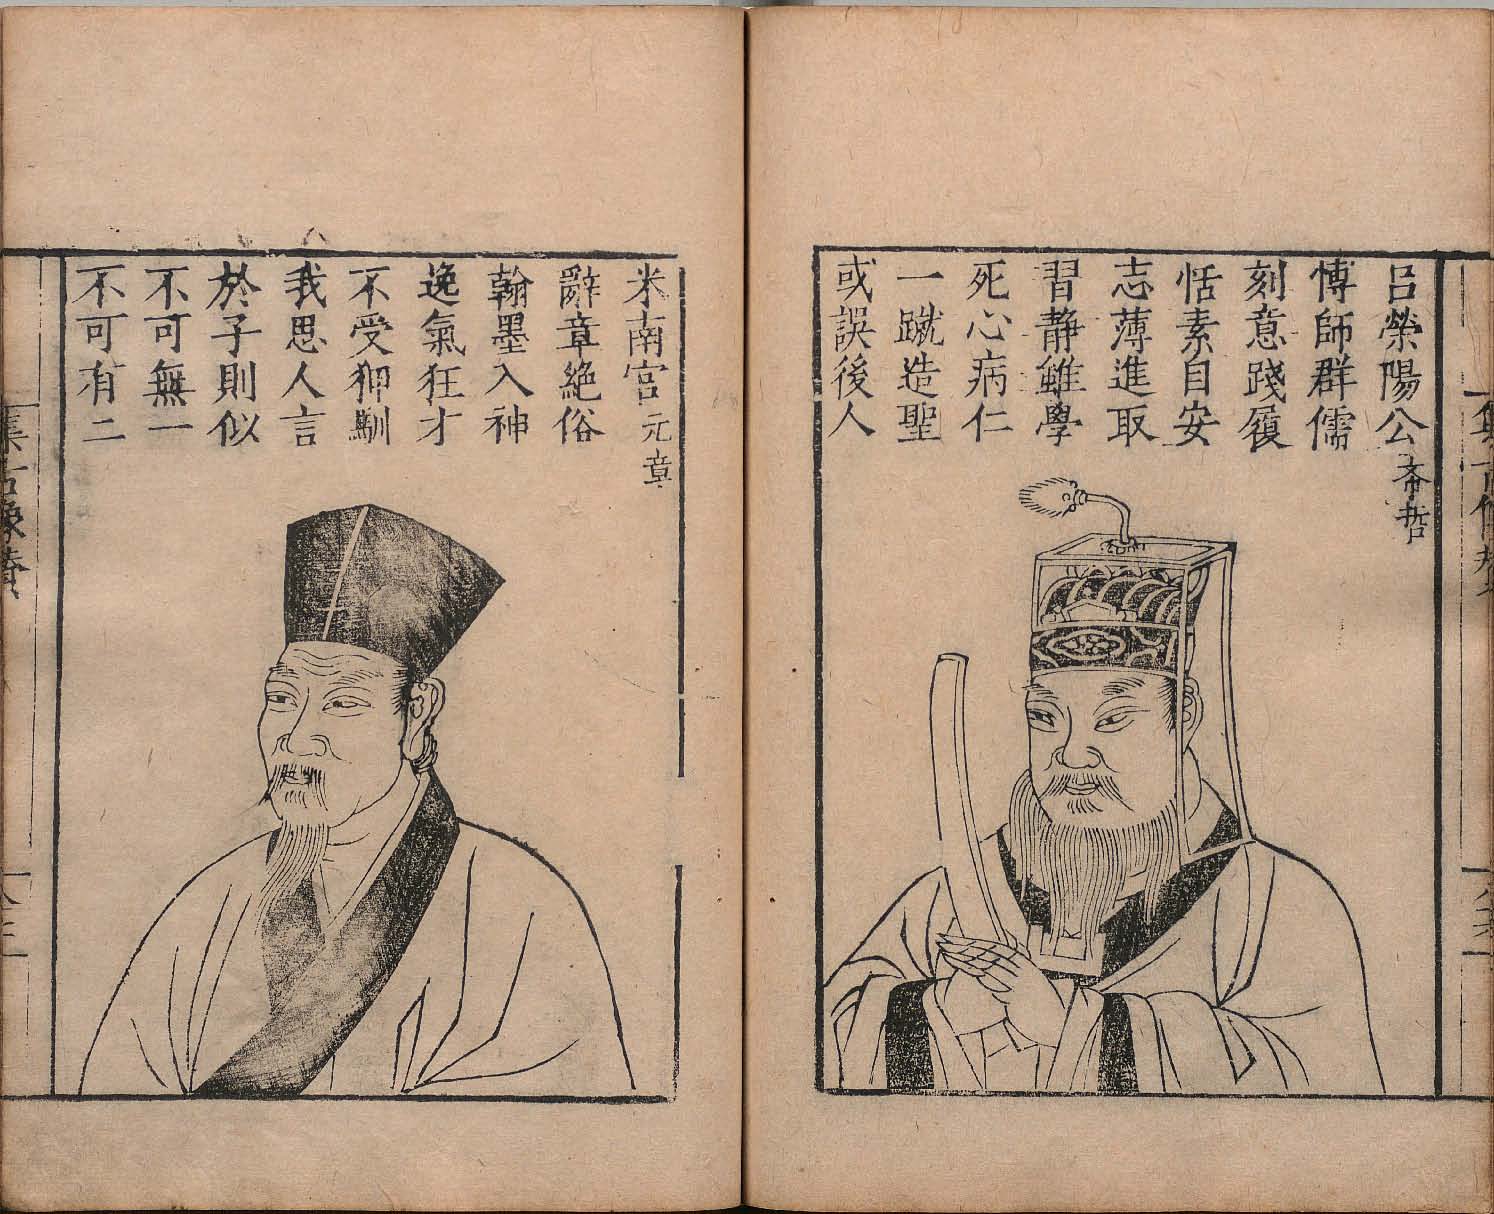 呂滎陽公 希哲
博師群儒
刻意踐履
恬素自安
志薄進取
習静雖學
死心病仁
一蹴造聖
或誤後人
米南宮 元章
辭章絶俗
翰墨入神
逸氣狂才
不受狎馴
我思人言
於子則似
不可無一
不可有二
集古像賛